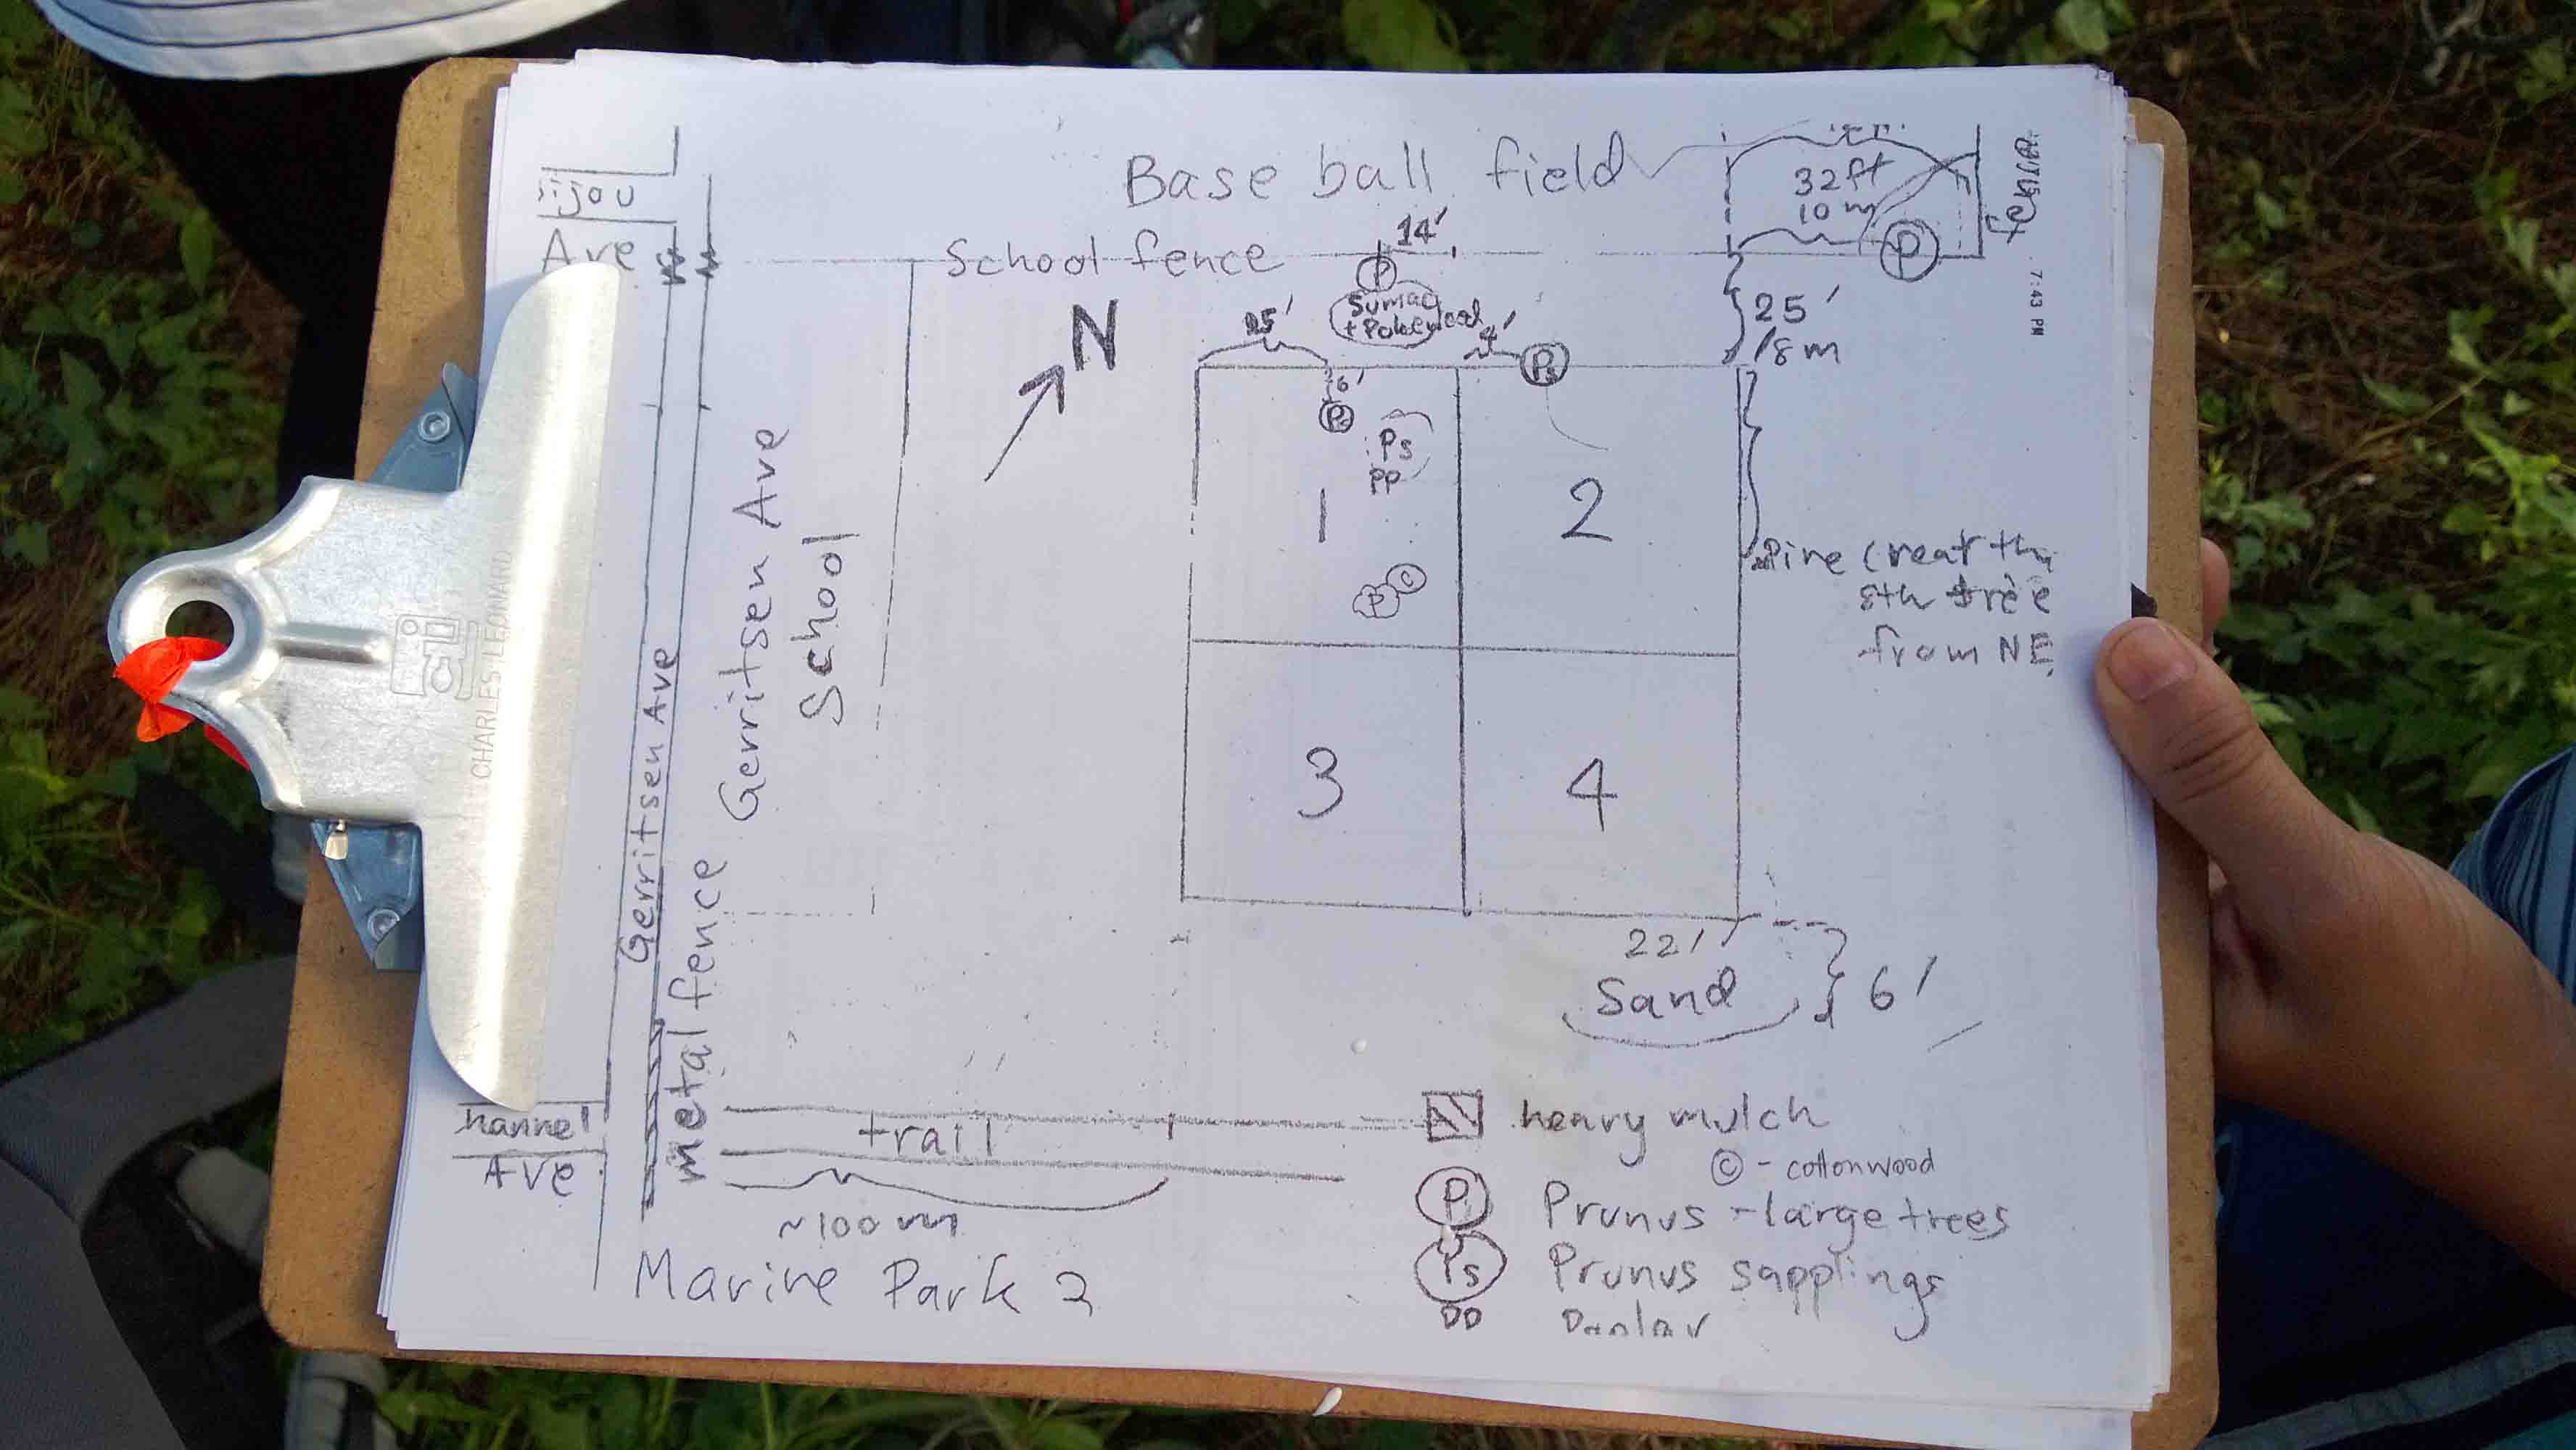 Base ball field
32 ft
10 m
P
7:43 PM
Ave
School fence
14'
P
Sumac
+ Pokeweed
25'
4'
Ps
25'
/8m
N
6'
Ps
Ps
PP
1
2
C
P
Pine (near the
8th tree
from NE
3
4
22'
Sand
6'
Gerritsen Ave
School
Gerritsen Ave
metal fence
hannel
Ave
trail
~100 m
Marine Park 2
heavy mulch
C - cottonwood
P Prunus - large trees
Ps Prunus sapplings
CHARLES LEONARD